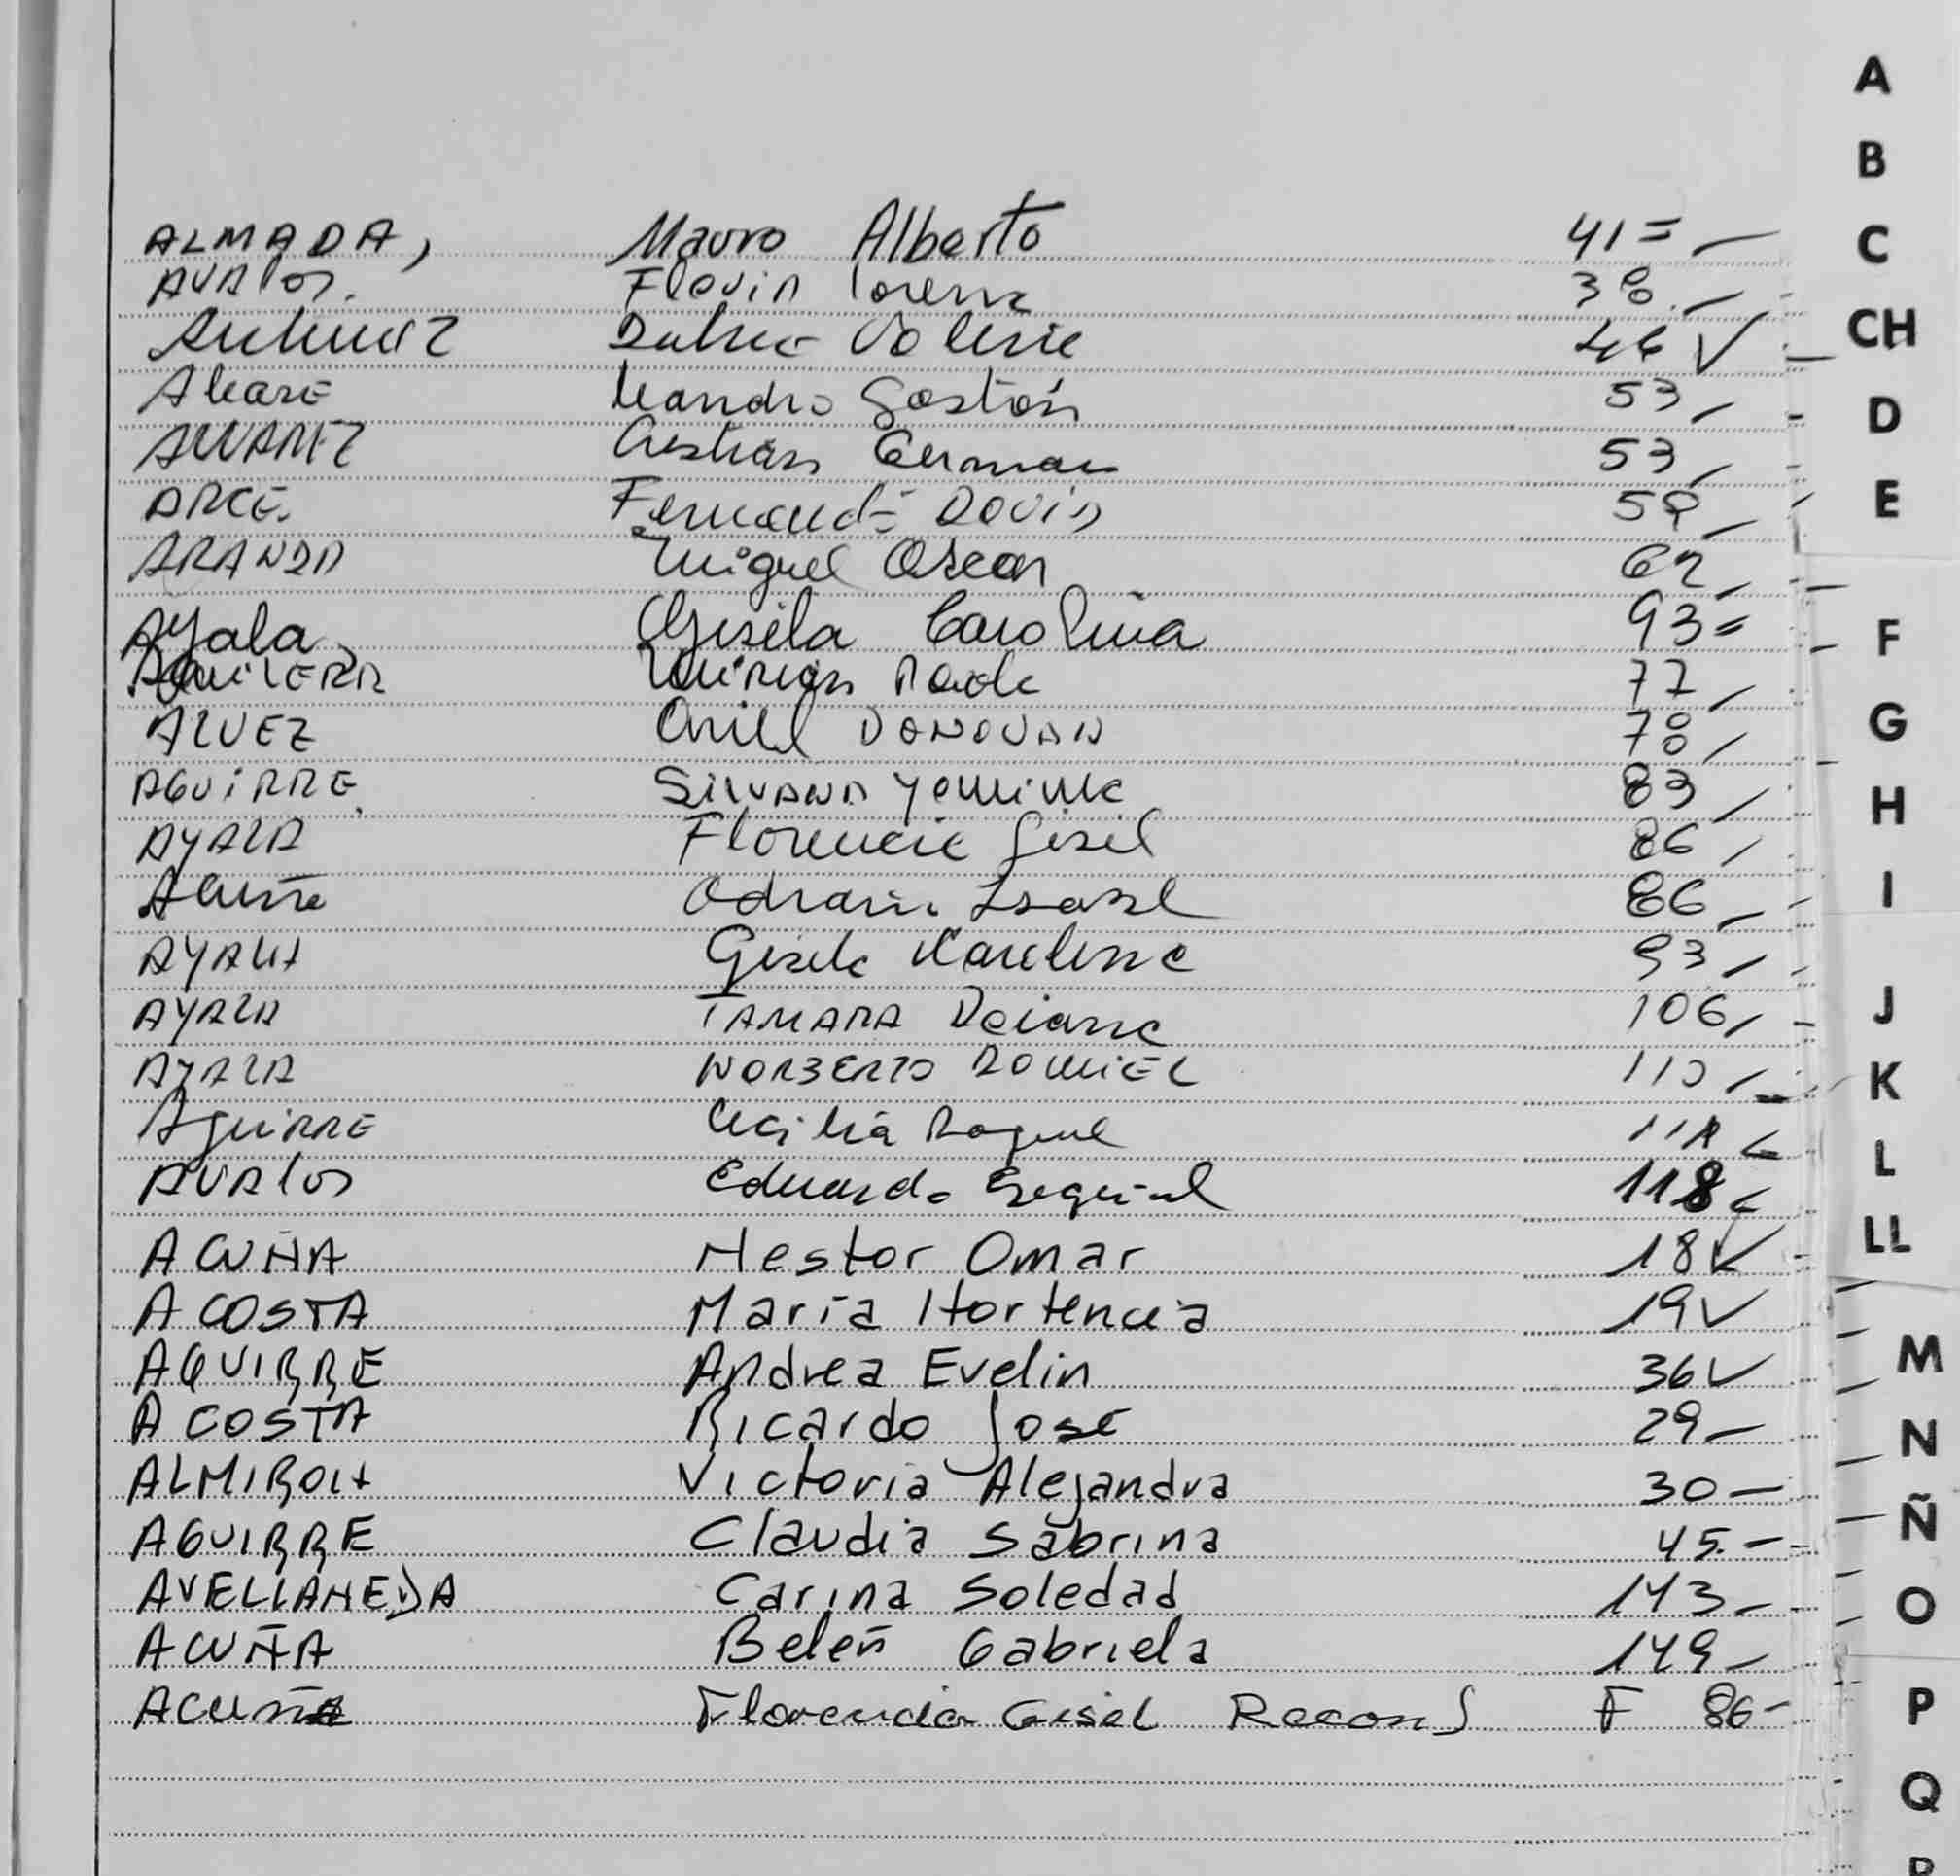 ALMADA, Mauro Alberto 41 =
AVAlos. Flavia lorena 38.
Valeria 46 ✓
leandro Gastón 53
ALVAREZ Cristian German 53
ARCE. Fernando David
ARANDA Miguel Oscar 62
Ayala Gisela Carolina 93 =
AGUILERA Paola 77
ALVEZ Oriel DONOVAN 78
AGUIRRE SILVANA Yemina 83
AYALA Florencia Gisel 86
Acuña Isabel 86
AYALA Gisela 93
AYALA TAMARA Daiana 106
AYALA NORBERTO 110
AguiRRE Cecilia Raquel
AVAlos Eduardo Ezequiel 118
ACUÑA Nestor Omar 18 ✓
ACOSTA María Hortencia 19 ✓
AGUIRRE Andrea Evelin 36 ✓
ACOSTA Ricardo José 29 –
ALMIRON Victoria Alejandra 30 –
AGUIRRE Claudia Sabrina 45. –
AVELLANEDA Carina Soledad 143 –
ACUÑA Belén Gabriela 149 –
Acuña Florencia Gisel F 86 –
A
B
C
CH
D
E
F
G
H
I
J
K
L
LL
M
N
Ñ
O
P
Q